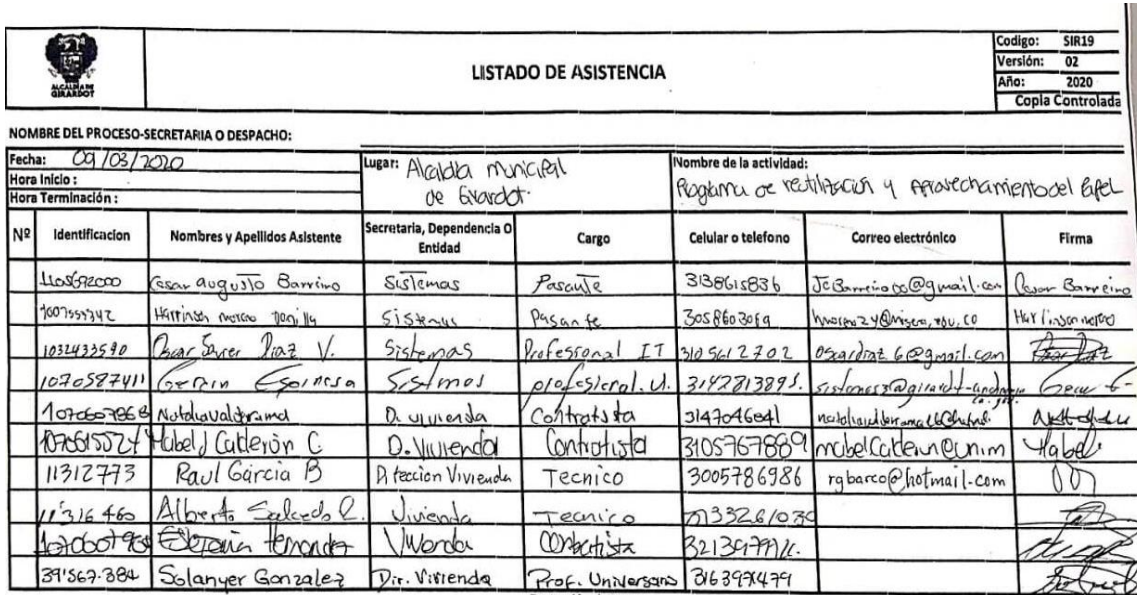 ALCALDIA DE
GIRARDOT
LISTADO DE ASISTENCIA
Codigo: SIR19
Versión: 02
Año: 2020
Copia Controlada
NOMBRE DEL PROCESO-SECRETARIA O DESPACHO:
Fecha: 09/03/2020
Hora Inicio :
Hora Terminación :
Lugar: Alcaldia municipal
de Girardot.
Nombre de la actividad:
Programa de reutilización y Aprovechamiento del Papel
Nº Identificacion Nombres y Apellidos Asistente Secretaria, Dependencia O Entidad Cargo Celular o telefono Correo electrónico Firma
1105692000 Cesar augusto Barreiro Sistemas Pasante 313861S836 Cesar Barreiro
Harrinson moreno Sistemas Pasante 3058603069 Harrinson moreno
1032433590 Oscar Javier Diaz V. Sistemas Profesional IT 3105612702 oscardiaz6@gmail.com
1070587411 Espinosa Sistemas profesional.U. 3142813895.
Natalia Valderrama D. vivienda Contratista 3147046041
1070615524 Mabel J Calderón C D. Vivienda Contratista 3105767889 Mabel
11312773 Raul Garcia B Direccion Vivienda Tecnico 3005786986 rgbarco@hotmail.com
11'316460 Alberto Salcedo R. Vivienda Tecnico
Hernandez Vivienda Contratista
39'567.384 Solanyer Gonzalez Dir. Vivienda Prof. Universario 3163971479